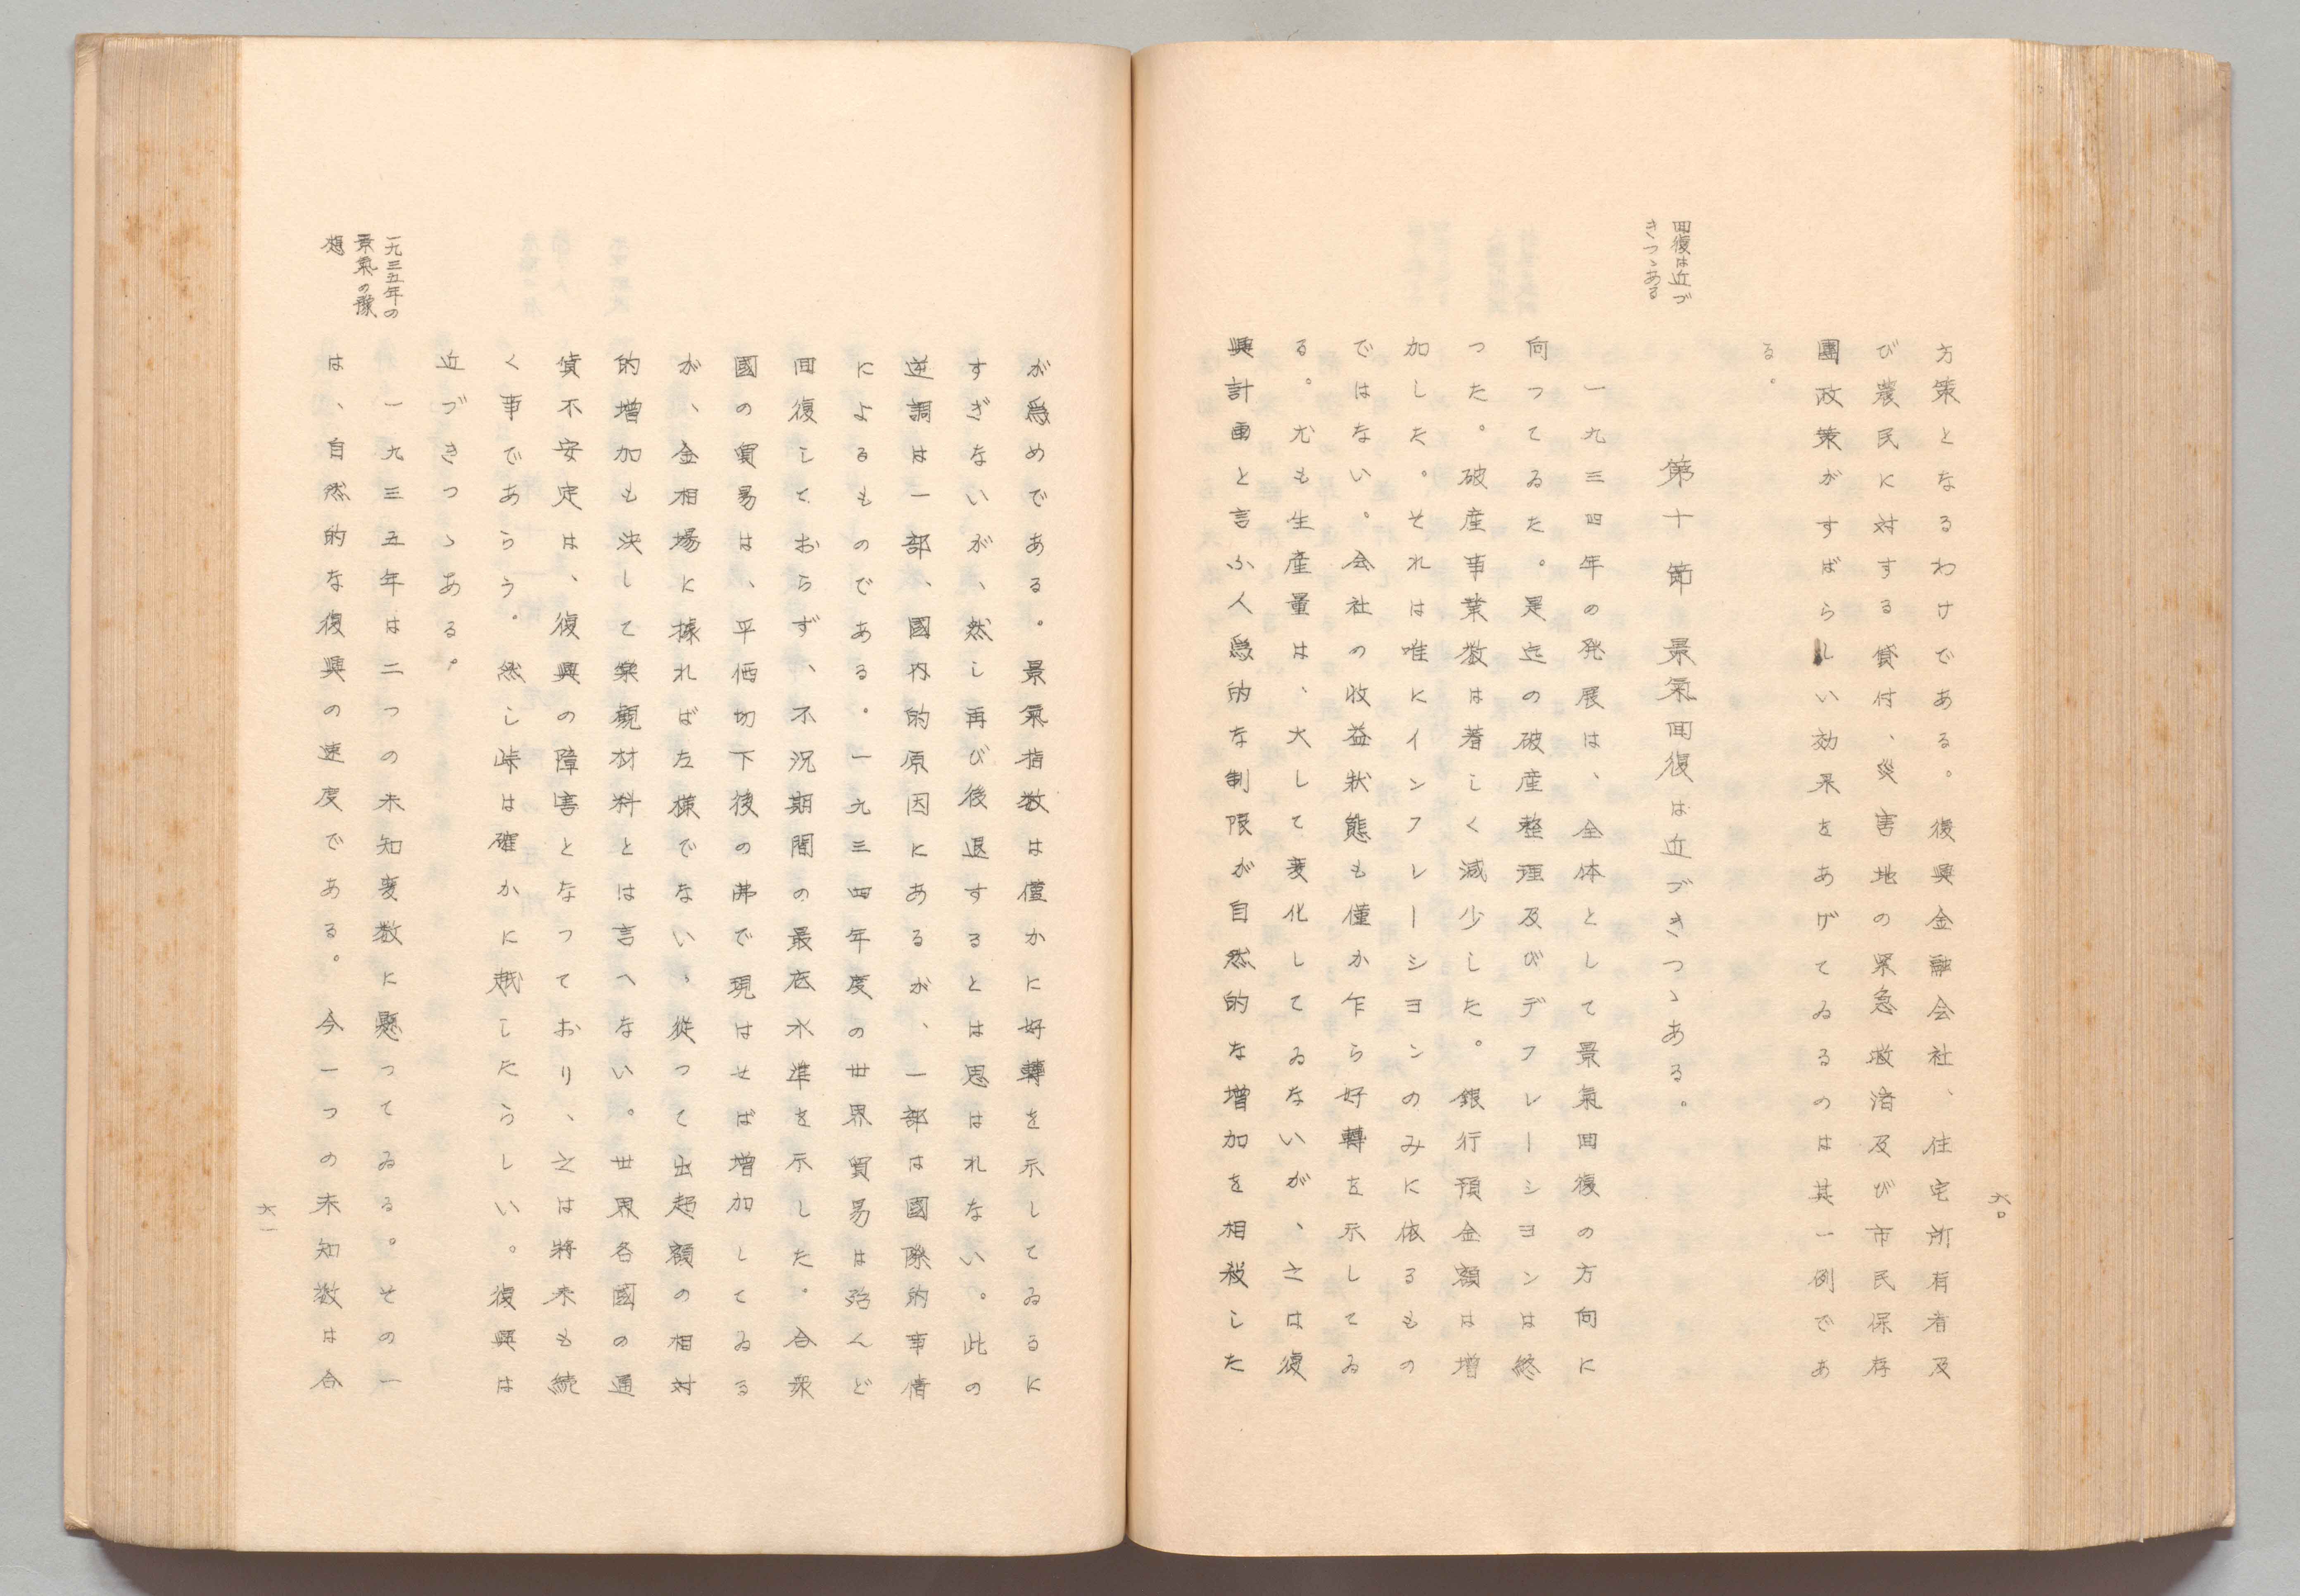 六〇
方策となるわけである。復興金融会社、住宅所有者及
び農民に対する貸付、災害地の罘急救済及び市民保存
團政策がすばらしい効果をあげてゐるのは其一例であ
る。
回復は近づ
きつゝある
第十節　景氣回復は近づきつゝある。
一九三四年の発展は、全体として景氣回復の方向に
向つてゐた。是迄の破産整理及びデフレーシヨンは終
つた。破産事業数は著しく減少した。銀行預金額は増
加した。それは唯にインフレーシヨンのみに依るもの
ではない。会社の收益狀態も僅か乍ら好轉を示してゐ
る。尤も生産量は、大して変化してゐないが、之は復
興計画と言ふ人爲的な制限が自然的な増加を相殺した
が爲めである。景氣指数は僅かに好轉を示してゐるに
すぎないが、然し再び後退するとは思はれない。此の
逆調は一部、國内的原因にあるが、一部は國際的事情
によるものである。一九三四年度の世界貿易は殆んど
回復しておらず、不況期間の最底水準を示した。合衆
國の貿易は、平価切下後の弗で現はせば増加してゐる
が、金相場に據れば左様でない、從つて出超額の相対
的増加も決して樂観材料とは言へない。世界各國の通
貨不安定は、復興の障害となつており、之は將来も続
く事であらう。然し峠は確かに越したらしい。復興は
近づきつゝある。
一九三五年の
景氣の豫
想
一九三五年は二つの未知変数に懸つてゐる。その一
は、自然的な復興の速度である。今一つの未知数は合
六一